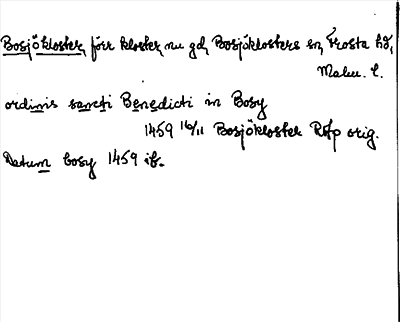 Bosjökloster, förr kloster, nu gd, Bosjöklosters sn, Frosta hd,
Malm. l.
ordinis sancti Benedicti in Bosy
1459 16/11 Bosjökloster RAp orig.
Datum bosy 1459 ib.